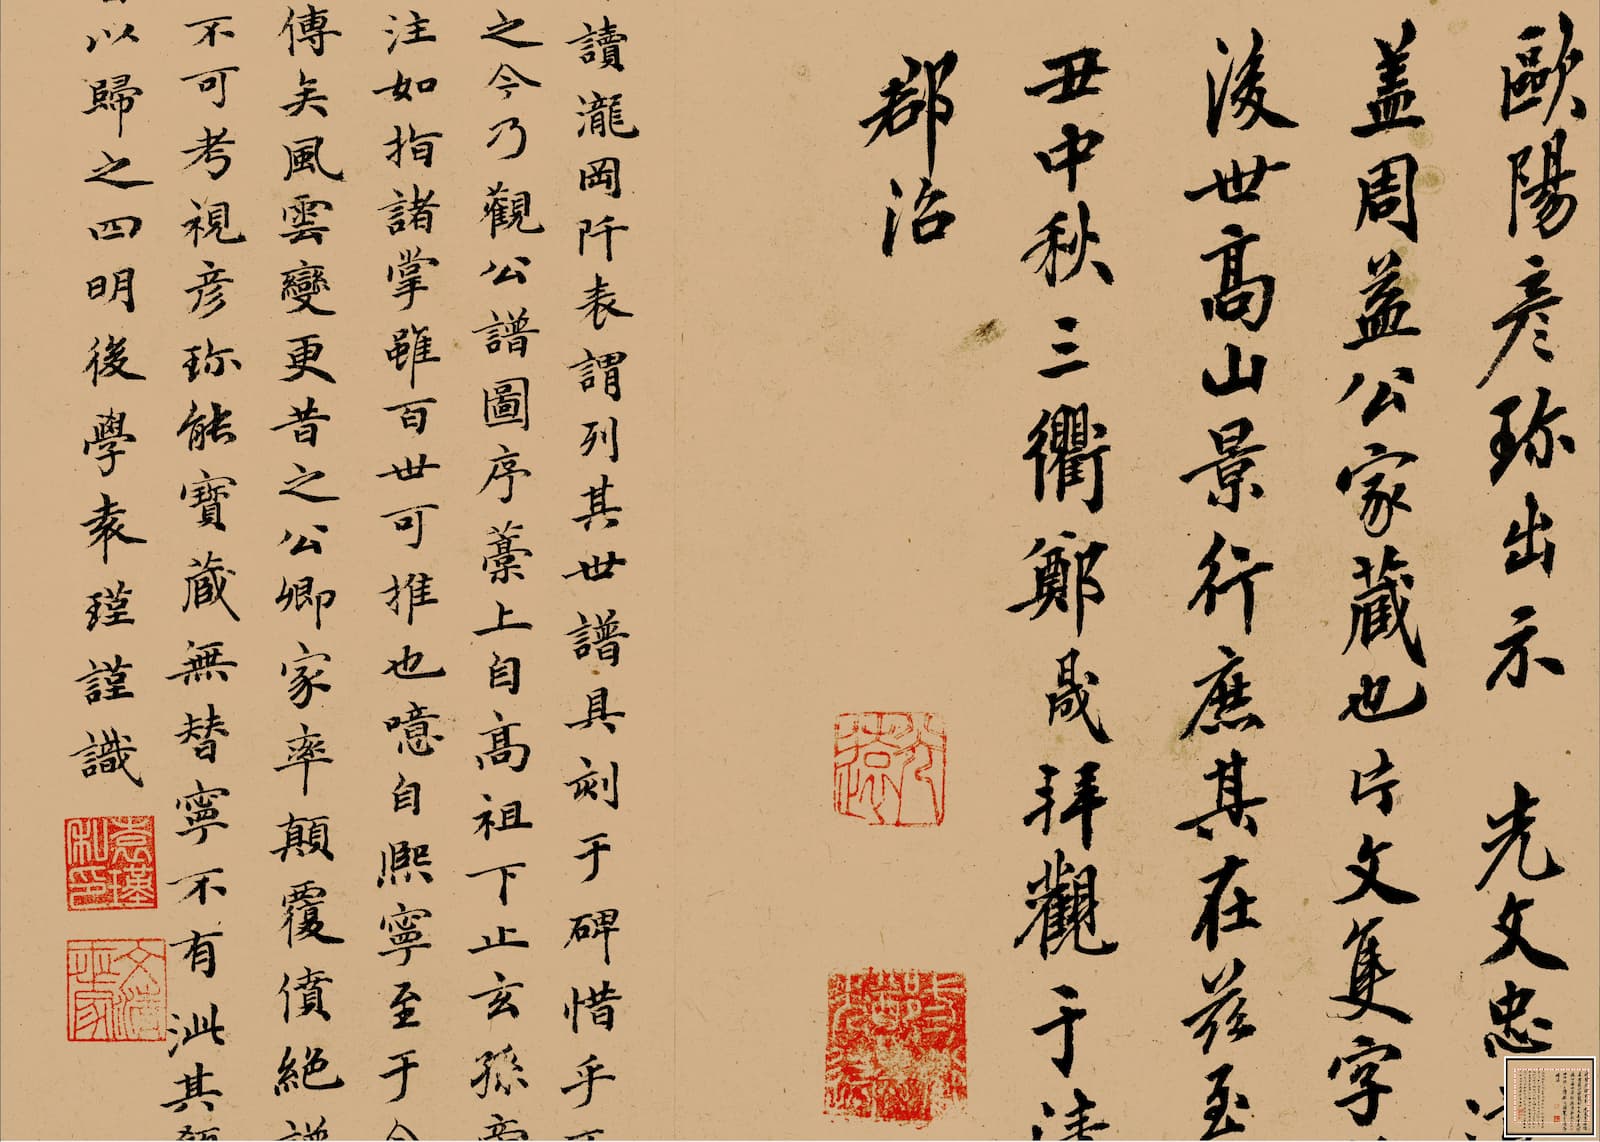 歐陽彥珎出示 先文忠
盖周益公家藏也片文隻字
後世高山景行庶其在茲至
丑中秋三衢鄭晟拜觀于清
郡治
讀瀧岡阡表謂列其世譜具刻于碑惜乎
之今乃觀公譜圖序藁上自高祖下止玄孫
注如指諸掌雖百世可推也噫自熈寧至于今
傳矣風雲變更昔之公卿家率顛覆僨絕譜
不可考視彥珎能寶藏無替寧不有泚其顙
以歸之四明後學袁瑾謹識
袁瑾私印